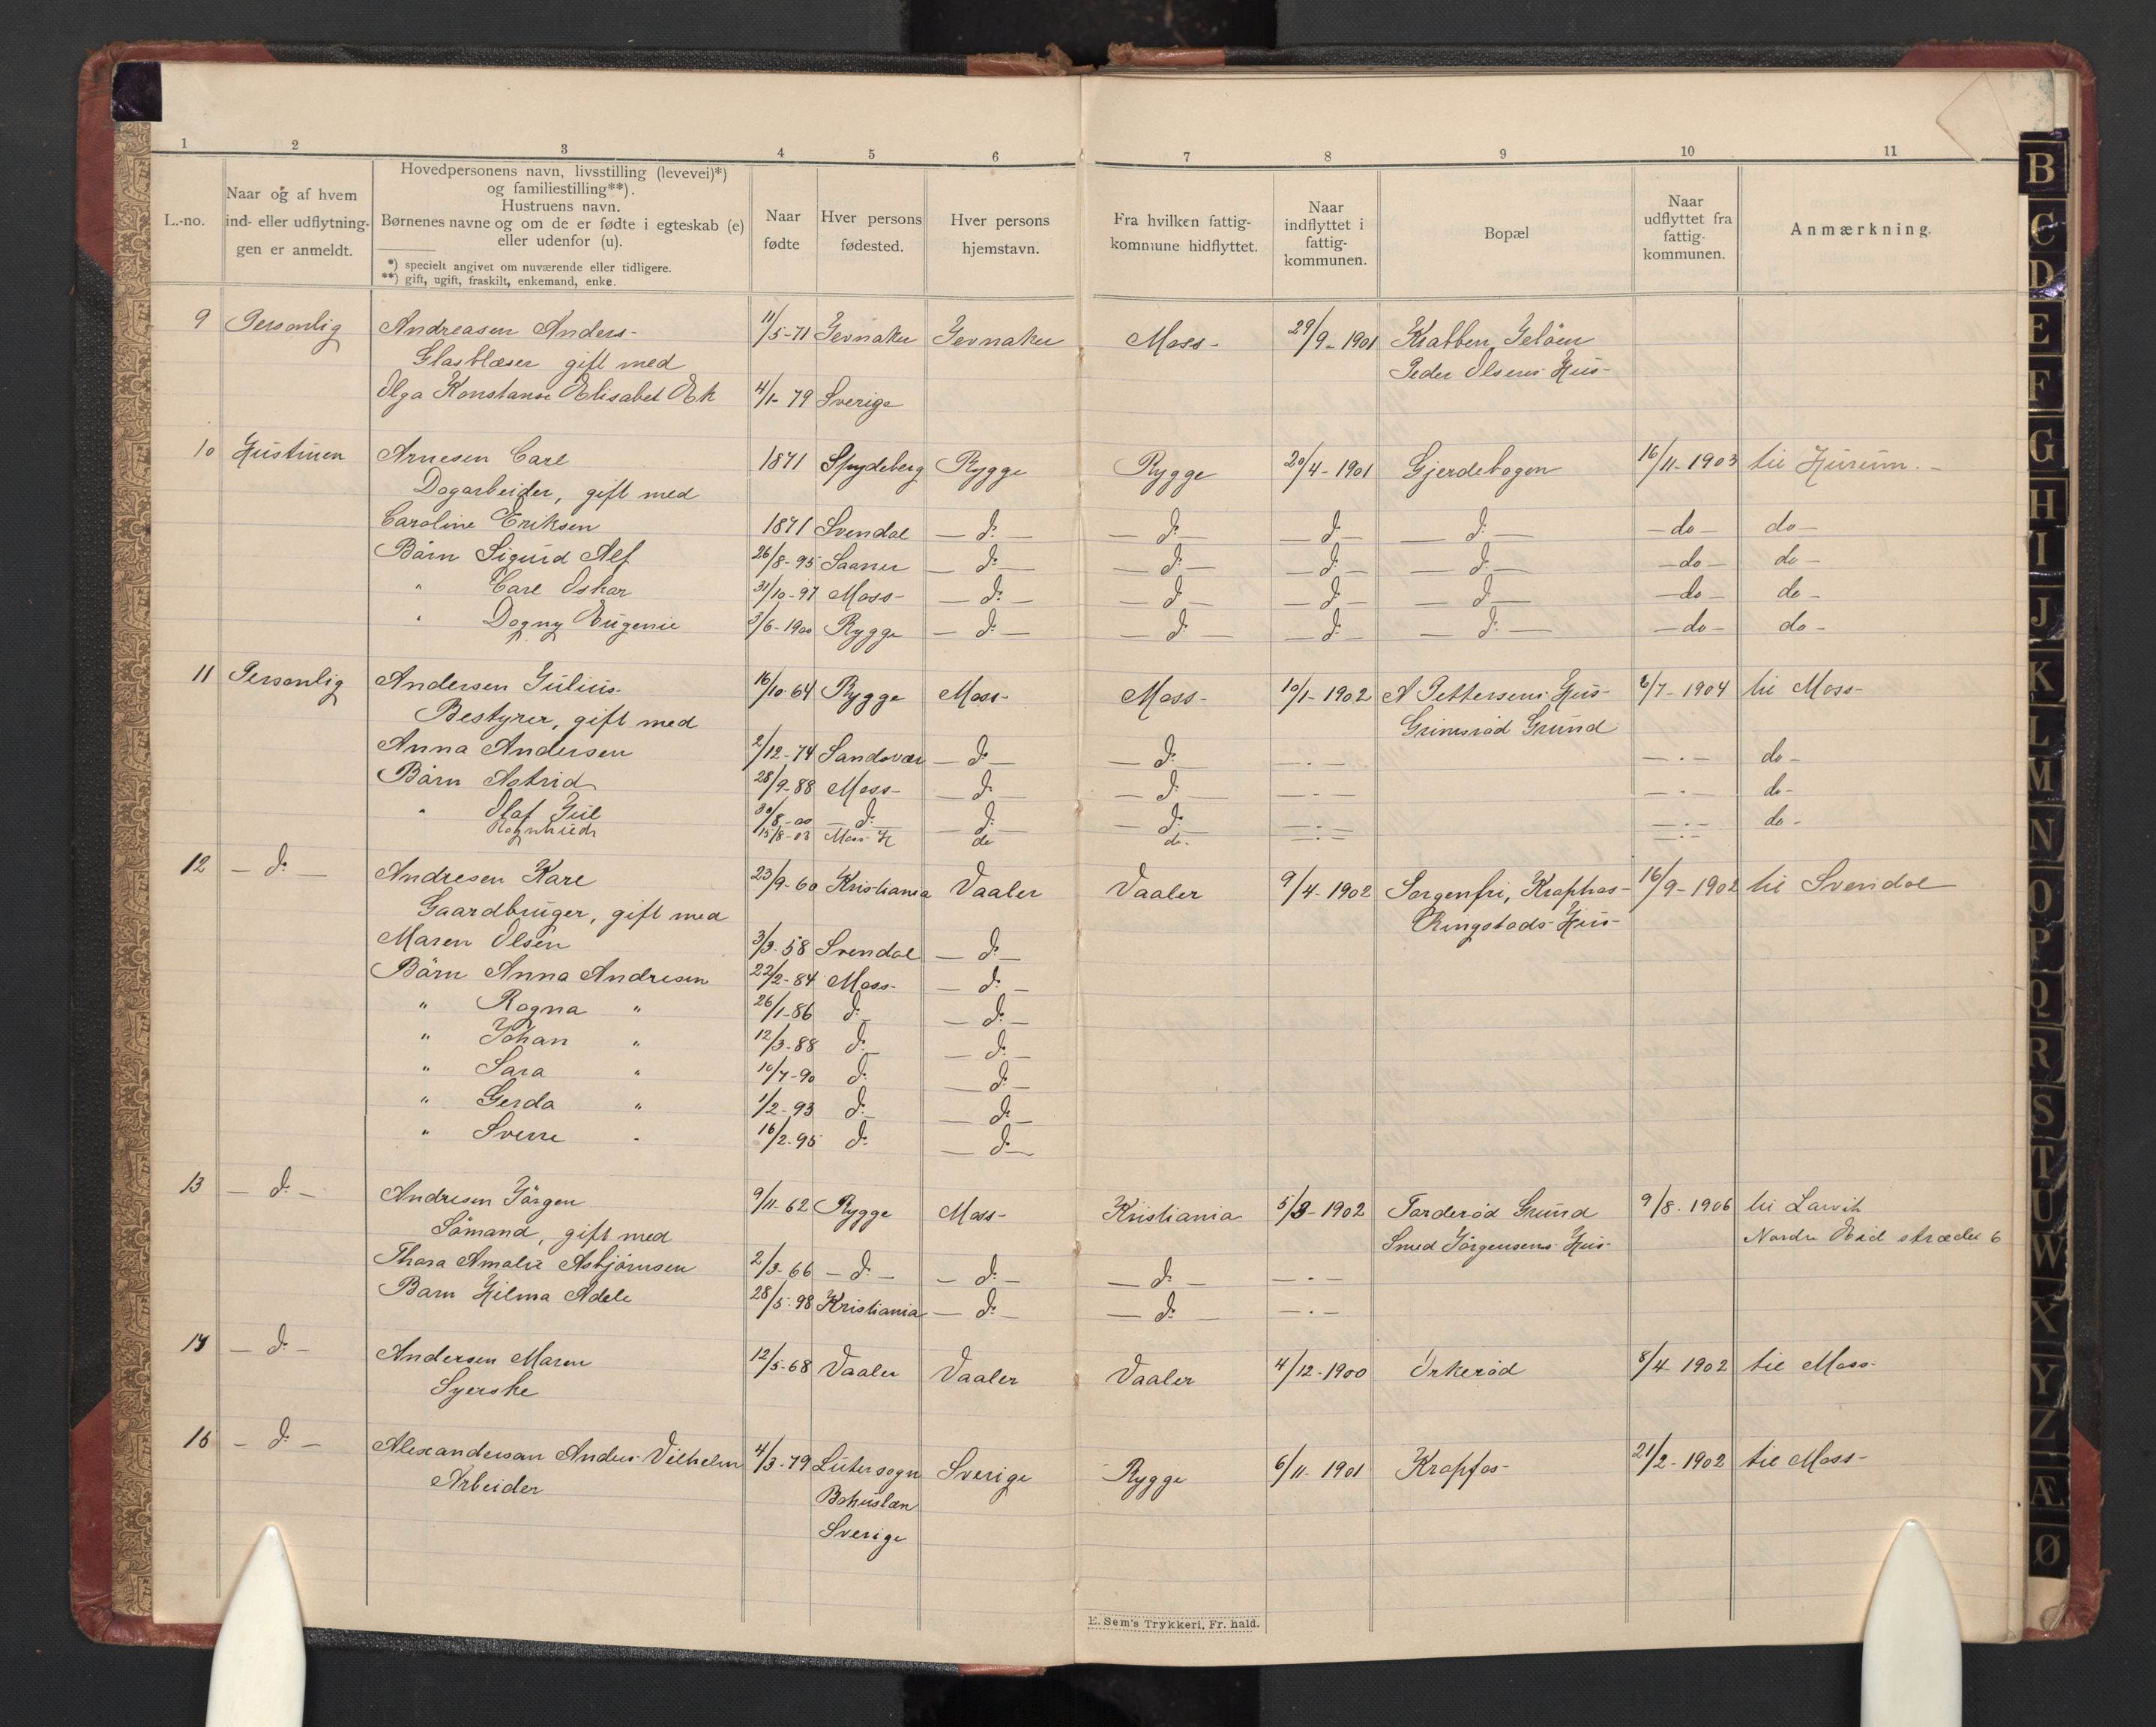 1 2 3 4 5 6 7 8 9 10 11
L.-no.
Naar og af hvem
ind- eller udflytnin-
gen er anmeldt.
Hovedpersonens navn, livsstilling (levevei)*)
og familiestilling**).
Hustruens navn.
Børnenes navne og om de er fødte i egteskab (e)
eller udenfor (u).
*) specielt angivet om nuværende eller tidligere.
**) gift, ugift, fraskilt, enkemand, enke.
Naar
fødte
Hver persons
fødested.
Hver persons
hjemstavn.
Fra hvilken fattig-
kommune hidflyttet.
Naar
indflyttet i
fattig-
kommunen.
Bopæl
Naar
udflyttet fra
fattig-
kommunen.
Anmærkning.
9 Personlig Andreasen Anders- 11/5-71 Jevnaker Jevnaker Moss- 29/9-1901 Krabben, Jeløen
Glasblæser gift med Peder Olsens Hus-
Olga Konstanse Elisabet Ek 4/1-79 Sverige
10 Hustruen Arnesen Carl 1871 Spydeberg Rygge Rygge 20/4-1901 Gjerdebogen 16/11-1903 til Hurum.-
Dagarbeider, gift med
Caroline Eriksen 1871 Svendal -d:- -d:- -d:- -d:- -do- do-
Børn Sigurd Alf 26/8-95 Saaner -d:- -d:- -d:- -d:- -do- do-
" Carl Oskar 31/10-97 Moss- -d:- -d:- -d:- -d:- -do- do-
" Dagny Eugenie 3/6-1900 Rygge -d:- -d:- -d:- -d:- -do- do-
11 Personlig Andersen Julius- 16/10-64 Rygge Moss- Moss- 10/1-1902 A Pettersens Hus- 6/7-1904 til Moss-
Bestyrer, gift med Grimsrød Grund
Anna Andersen 2/12-74 Sandsvær -d:- -d:- -.- -.- do-
Børn Astrid 28/9-88 Moss- -d:- -d:- -.- -.- do-
" Olaf Jul 30/8-00 -d:- -d:- -d:- -.- -.- do-
Ragnhild 15/8-03 Moss do do. -.- -.-
12 -d:- Andresen Karl 23/9-60 Kristiania Vaaler Vaaler 9/4-1902 Sorgenfri, Krapfos- 16/9-1902 til Svendal
Gaardbruger, gift med Ringstads Hus-
Maren Olsen 3/3-58 Svendal -d:-
Børn Anna Andresen 22/2-84 Moss- -d:-
" Ragna " 26/1-86 d:- -d:-
" Johan " 12/3-88 d:- -d:-
" Sara " 10/7-90 d: -d:-
" Gerda " 1/2-93 d:- -d:-
" Sverre " 16/2-95 d: -d:-
13 -d:- Andresen Jørgen 9/11-62 Rygge Moss- Kristiania 5/3-1902 Tarderød Grund 9/8-1906 til Larvik
Sømand, gift med Smed Jørgensens Hus- Nordre strædet 6
Thora Amalie Asbjørnsen 2/3-66 -d:- -d:- -d:- -.-
Barn Hilma Adele 28/5-98 Kristiania -d:- -d:- -.-
14 -d:- Andersen Maren 12/5-68 Vaaler Vaaler Vaaler 4/12-1900 Orkerød 8/4-1902 til Moss-
Syerske
15 -d:- Alexandersan Anders Vilhelm 4/3-79 Lutersogn Sverige Rygge 6/11-1901 Krapfos- 21/2-1902 til Moss-
Arbeider Bohuslæn
Sverige
E. Sem's Trykkeri, Fr. hald.
B
C
D
E
F
G
H
I
J
K
L
M
N
O
P
Q
R
S
T
U
W
X
Y
Z
Æ
Ø